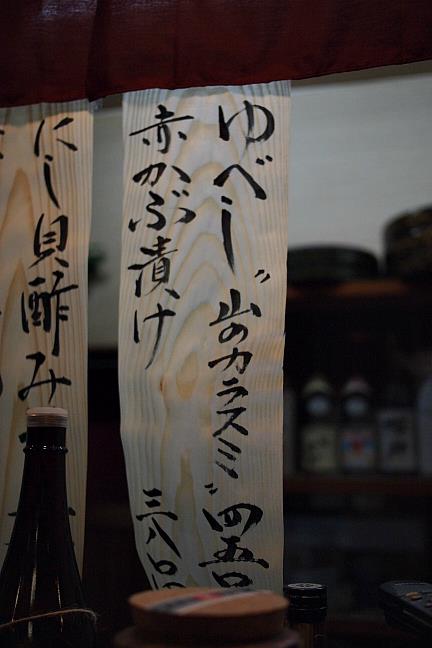 ゆべし〝山のカラスミ〟四五〇
赤かぶ漬け 三八〇
にし貝酢み